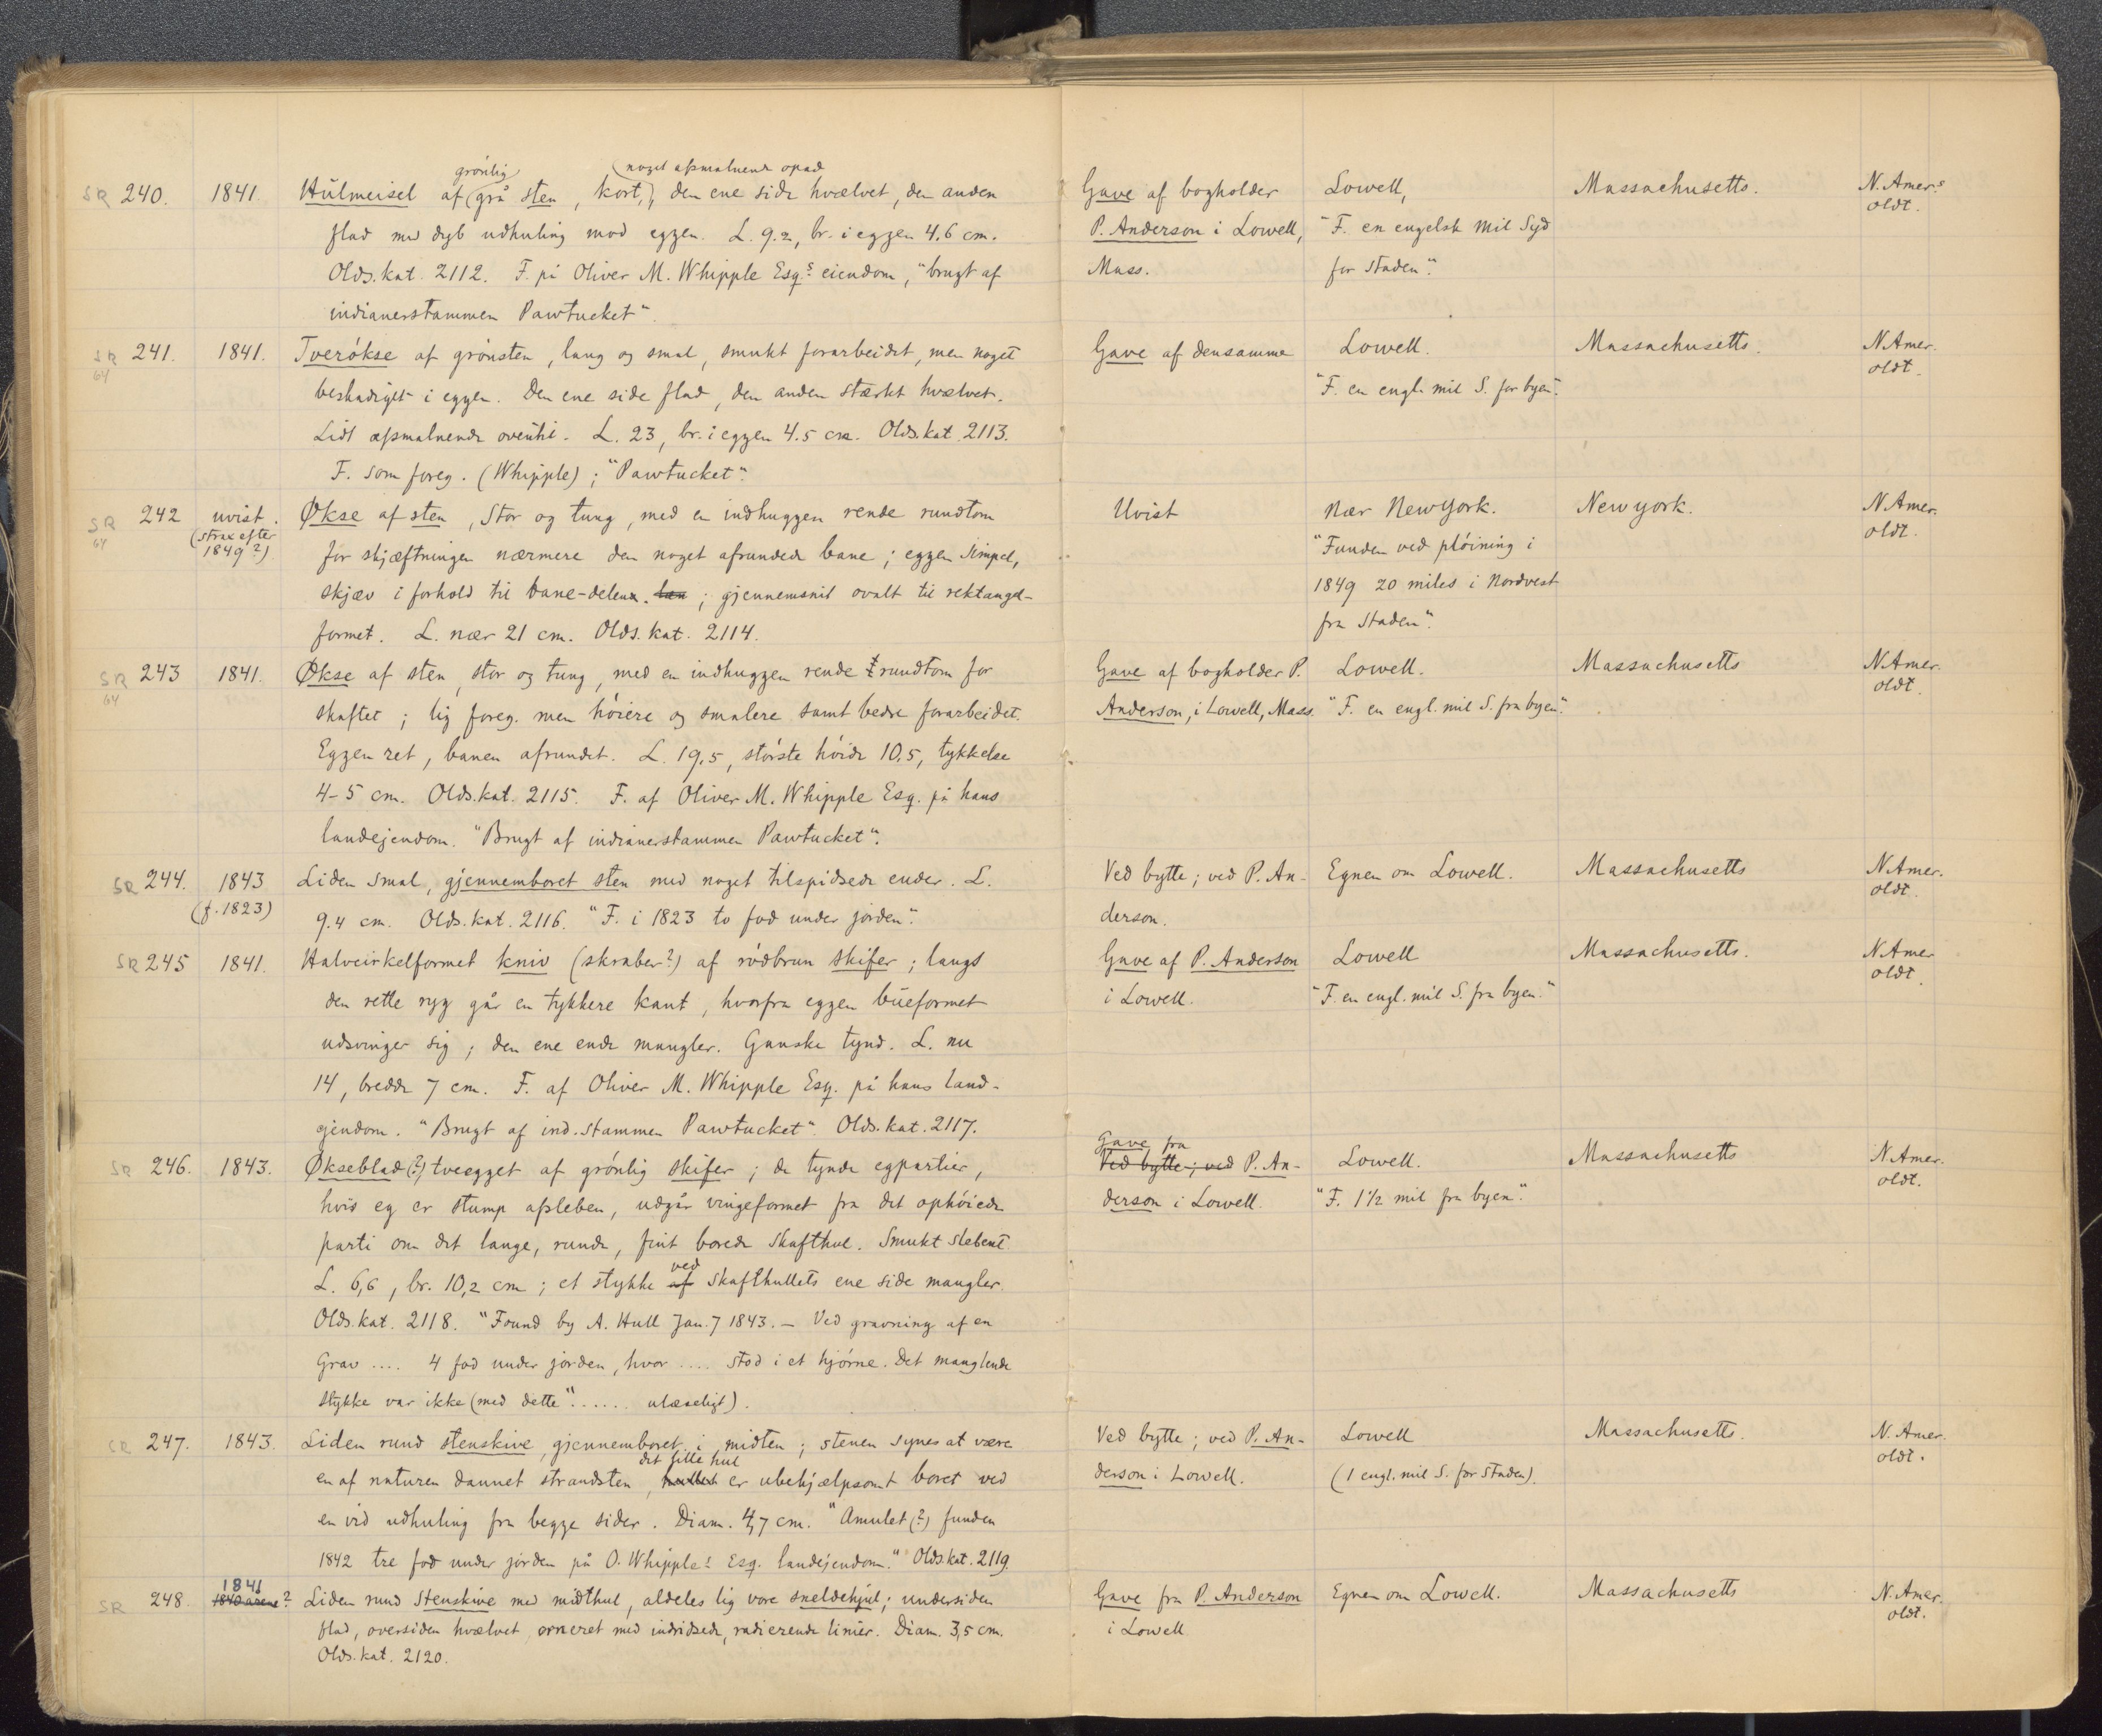 SR 240. 1841. Hulmeisel af (grønlig) grå sten, kort, (noget afsmalnende opad), den ene side hvælvet, den anden
flad med dyb udhuling mod eggen. L. 9.2, br. i eggen 4,6 cm.
Olds.kat. 2112. F. på Oliver M. Whipple Esq.s eiendom, "brugt af
indianerstammen Pawtucket".
Gave af bogholder
P. Anderson i Lowell,
Mass.
Lowell,
"F. en engelsk mil Syd
for staden".
Massachusetts.
N. Amer.s
oldt.
SR 241. 1841. Tverøkse af grønsten, lang og smal, smukt forarbeidet, men noget
64
beskadiget i eggen. Den ene side flad, den anden stærkt hvælvet.
Lidt afsmalnende oventil. L. 23, br. i eggen 4.5 cm. Olds.kat. 2113.
F. som foreg. (Whipple); "Pawtucket".
Gave af densamme
Lowell.
"F. en engl. mil S. for byen".
Massachusetts.
N. Amer.
oldt.
SR 242 uvist. Økse af sten, stor og tung, med en indhuggen rende rundtom
64
(strax efter
1849?)
for skjæftningen nærmere den noget afrundede bane; eggen simpel,
skjæv i forhold til bane-delen; gjennemsnit ovalt til rektangel-
formet. L. nær 21 cm. Olds.kat. 2114.
Uvist
Nær New York.
"Funden ved pløining i
1849 20 miles i Nordvest
fra staden".
New york.
N. Amer.
oldt.
SR 243 1841. Økse af sten, stor og tung, med en indhuggen rende rundtom for
64
skaftet; lig foreg. men høiere og smalere samt bedre forarbeidet.
Eggen ret, banen afrundet. L. 19,5, største høide 10,5, tykkelse
4-5 cm. Olds.kat. 2115. F. af Oliver M. Whipple Esq. på hans
landejendom. "Brugt af indianerstammen Pawtucket".
Gave af bogholder P.
Anderson, i Lowell, Mass.
Lowell.
"F. en engl. mil S. fra byen".
Massachusetts
N. Amer.
oldt.
SR 244. 1843 Liden smal, gjennemboret sten med noget tilspidsede ender. L.
(f. 1823)
9.4 cm. Olds.kat. 2116. "F. i 1823 to fod under jorden".
Ved bytte; ved P. An-
derson.
Egnen om Lowell.
Massachusetts
N. Amer.
oldt.
SR 245 1841. Halvcirkelformet kniv (skraber?) af rødbrun skifer; langs
den rette ryg går en tykkere kant, hvorfra eggen bueformet
udsvinger sig; den ene ende mangler. Ganske tynd. L. nu
14, bredde 7 cm. F. af Oliver M. Whipple Esq. på hans land-
ejendom. "Brugt af ind.stammen Pawtucket". Olds.kat. 2117.
Gave af P. Anderson
i Lowell.
Lowell
"F. en engl. mil S. fra byen."
Massachusetts.
N. Amer
oldt.
SR 246. 1843. Økseblad (?) tveegget af grønlig skifer; de tynde egpartier,
hvis eg er stump afsleben, udgår vingeformet fra det ophøiede
parti om det lange, runde, fint borede skafthul. Smukt slebent.
L. 6,6, br. 10,2 cm; et stykke af ved skafthullets ene side mangler.
Olds.kat. 2118. "Found by A. Hull Jan. 7 1843. — Ved gravning af en
Grav .... 4 fod under jorden, hvor .... stod i et hjørne. Det manglende
stykke var ikke (med dette" ...... ulæseligt).
Gave fra
Ved bytte; ved P. An-
derson i Lowell.
Lowell.
"F. 1 1/2 mil fra byen".
Massachusetts
N. Amer.
oldt.
SR 247. 1843. Liden rund stenskive, gjennemboret i midten; stenen synes at være
en af naturen dannet strandsten, hullet det lille hul er ubehjælpsomt boret ved
en vid udhuling fra begge sider. Diam. 4,7 cm. "Amulet (?) funden
1842 tre fod under jorden på O. Whipple's Esq. landejendom." Olds.kat. 2119.
Ved bytte; ved P. An-
derson i Lowell.
Lowell
(1 engl. mil S. for staden).
Massachusetts.
N. Amer.
oldt.
1841
SR 248. 1840 årene? Liden rund stenskive med midthul, aldeles lig vore sneldehjul; undersiden
flad, oversiden hvælvet, orneret med indridsede, radierende linier. Diam. 3,5 cm.
Olds.kat. 2120.
Gave fra P. Anderson
i Lowell
Egnen om Lowell.
Massachusetts
N. Amer.
oldt.